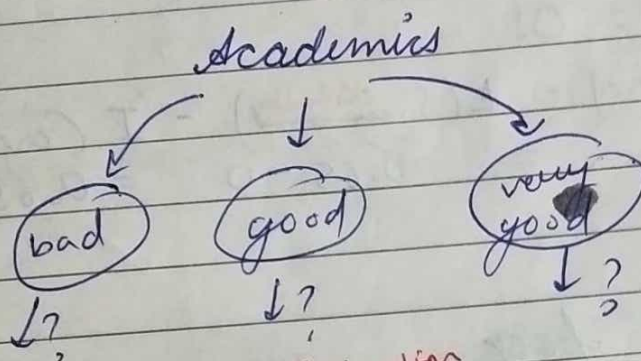 Academics
bad
good
very
good
?
?
?